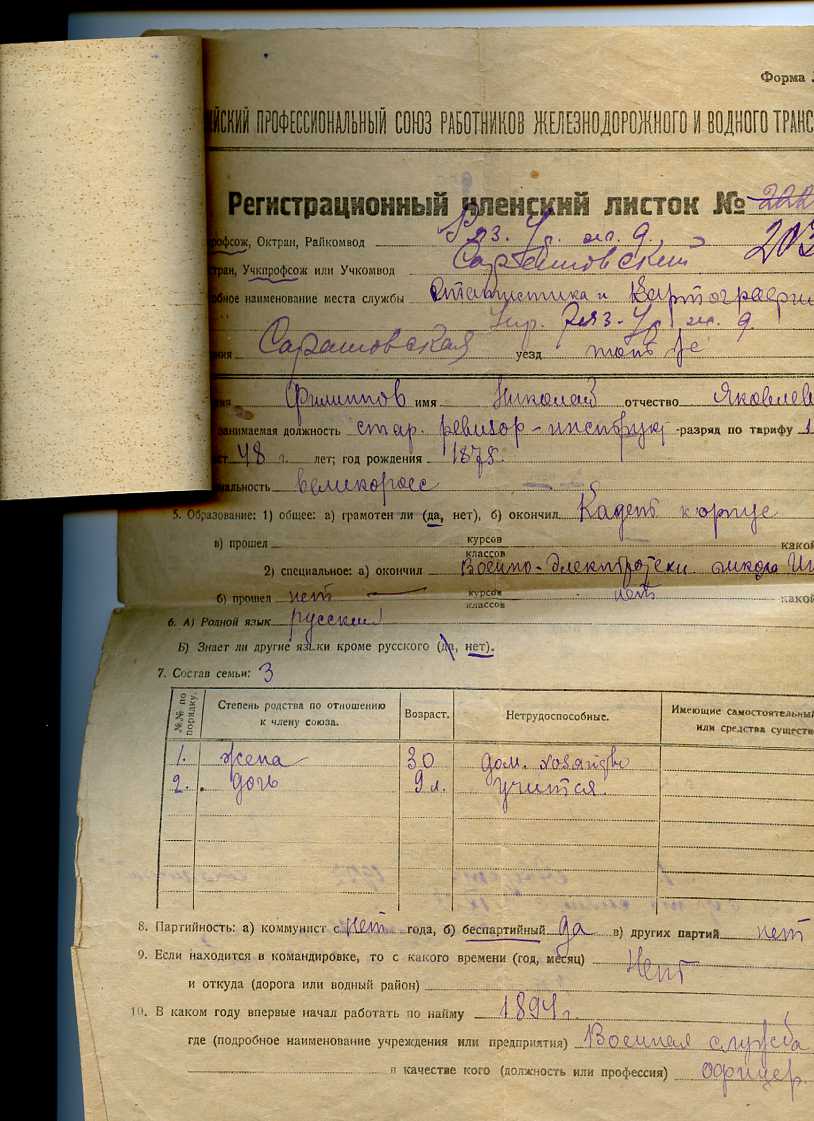 Форма
ИЙСКИЙ ПРОФЕССИОНАЛЬНЫЙ СОЮЗ РАБОТНИКОВ ЖЕЛЕЗНОДОРОЖНОГО И ВОДНОГО ТРАНС
Регистрационный членский листок № 222
203
рофсож, Октран, Райкомвод Ряз. Ур. ж. д.
тран, Учкпрофсож или Учкомвод Саратовский
бное наименование места службы Статистика и Картография
Упр. Ряз-Ур ж. д.
ния Саратовская уезд тоже
ия Филиппов имя Николай отчество Яковлев
занимаемая должность стар. ревизор-инструкт -разряд по тарифу 1
ст 48 г. лет; год рождения 1878.
нальность великоросс
5. Образование: 1) общее: а) грамотен ли (да, нет), б) окончил Кадетс корпус
в) прошел курсов классов какой
2) специальное: а) окончил Военно-электротехн. школа
б) прошел нет курсов классов нет какой
6. А) Родной язык русский
Б) Знает ли другие языки кроме русского (да, нет).
7. Состав семьи: 3
№№ по порядку. Степень родства по отношению к члену союза. Возраст. Нетрудоспособные. Имеющие самостоятельный или средства существ
1. жена 30 дом. хозяйство
2. дочь 9 л. учится.
8. Партийность: а) коммунист с нет года, б) беспартийный да в) других партий нет
9. Если находится в командировке, то с какого времени (год, месяц) Нет
и откуда (дорога или водный район)
10. В каком году впервые начал работать по найму 1894 г.
где (подробное наименование учреждения или предприятия) Военная служба
в качестве кого (должность или профессия) офицер.